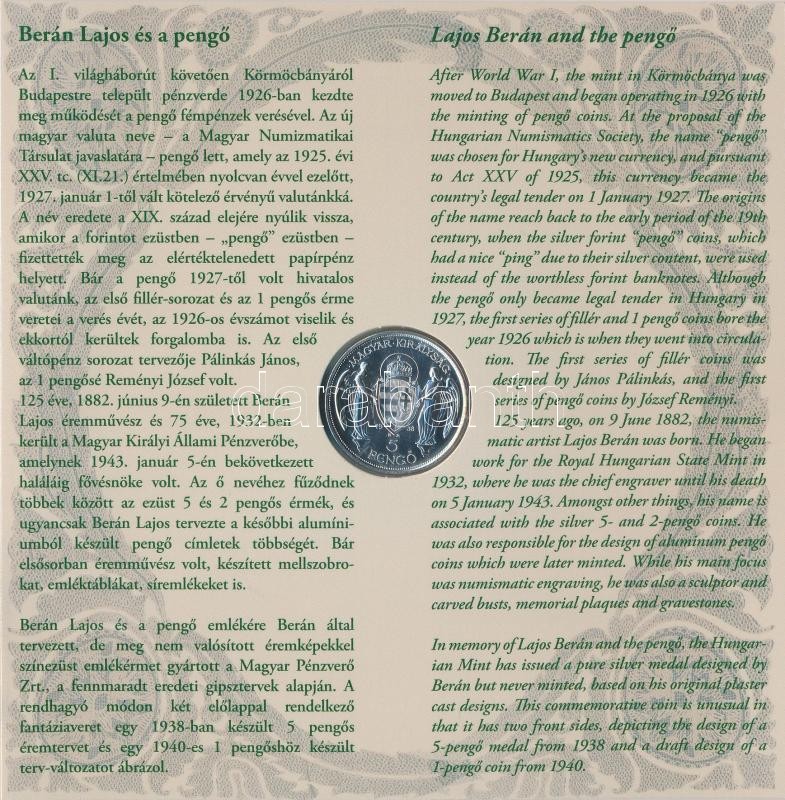 Berán Lajos és a pengő
Az I. világháborút követően Körmöcbányáról
Budapestre települt pénzverde 1926-ban kezdte
meg működését a pengő fémpénzek verésével. Az új
magyar valuta neve – a Magyar Numizmatikai
Társulat javaslatára – pengő lett, amely az 1925. évi
XXV. tc. (XI.21.) értelmében nyolcvan évvel ezelőtt,
1927. január 1-től vált kötelező érvényű valutánkká.
A név eredete a XIX. század elejére nyúlik vissza,
amikor a forintot ezüstben – „pengő” ezüstben –
fizettették meg az elértéktelenedett papírpénz
helyett. Bár a pengő 1927-től volt hivatalos
valutánk, az első fillér-sorozat és az 1 pengős érme
veretei a verés évét, az 1926-os évszámot viselik és
ekkortól kerültek forgalomba is. Az első
váltópénz sorozat tervezője Pálinkás János,
az 1 pengősé Reményi József volt.
125 éve, 1882. június 9-én született Berán
Lajos éremművész és 75 éve, 1932-ben
került a Magyar Királyi Állami Pénzverőbe,
amelynek 1943. január 5-én bekövetkezett
haláláig fővésnöke volt. Az ő nevéhez fűződnek
többek között az ezüst 5 és 2 pengős érmék, és
ugyancsak Berán Lajos tervezte a későbbi alumíni-
umból készült pengő címletek többségét. Bár
elsősorban éremművész volt, készített mellszobro-
kat, emléktáblákat, síremlékeket is.
Berán Lajos és a pengő emlékére Berán által
tervezett, de meg nem valósított éremképekkel
színezüst emlékérmet gyártott a Magyar Pénzverő
Zrt., a fennmaradt eredeti gipsztervek alapján. A
rendhagyó módon két előlappal rendelkező
fantáziaveret egy 1938-ban készült 5 pengős
éremtervet és egy 1940-es 1 pengőshöz készült
terv-változatot ábrázol.
Lajos Berán and the pengő
After World War I, the mint in Körmöcbánya was
moved to Budapest and began operating in 1926 with
the minting of pengő coins. At the proposal of the
Hungarian Numismatics Society, the name “pengő”
was chosen for Hungary's new currency, and pursuant
to Act XXV of 1925, this currency became the
country's legal tender on 1 January 1927. The origins
of the name reach back to the early period of the 19th
century, when the silver forint “pengő” coins, which
had a nice “ping” due to their silver content, were used
instead of the worthless forint banknotes. Although
the pengő only became legal tender in Hungary in
1927, the first series of fillér and 1 pengő coins bore the
year 1926 which is when they went into circula-
tion. The first series of fillér coins was
designed by János Pálinkás, and the first
series of pengő coins by József Reményi.
125 years ago, on 9 June 1882, the numis-
matic artist Lajos Berán was born. He began
work for the Royal Hungarian State Mint in
1932, where he was the chief engraver until his death
on 5 January 1943. Amongst other things, his name is
associated with the silver 5- and 2-pengő coins. He
was also responsible for the design of aluminum pengő
coins which were later minted. While his main focus
was numismatic engraving, he was also a sculptor and
carved busts, memorial plaques and gravestones.
In memory of Lajos Berán and the pengő, the Hungar-
ian Mint has issued a pure silver medal designed by
Berán but never minted, based on his original plaster
cast designs. This commemorative coin is unusual in
that it has two front sides, depicting the design of a
5-pengő medal from 1938 and a draft design of a
1-pengő coin from 1940.
MAGYAR KIRÁLYSÁG
19 38
5
PENGŐ
darabanth